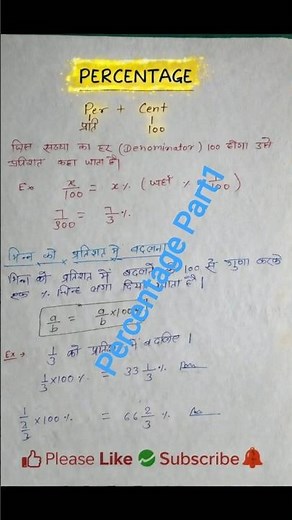 PERCENTAGE
Per + Cent
प्रति 100
जिस संख्या का हर (Denominator) 100 होगा उसे
प्रतिशत कहा जाता है।
Ex x/100 = x% (जहाँ % 1/100)
7/300 = 7/3 %
भिन्न को प्रतिशत में बदलना
भिन्न को प्रतिशत में बदलने 100 से गुणा करके
% चिन्ह लगा दिया जाता है।
a/b = a/b × 100%
Ex → 1/3 को प्रतिशत में
1/3 × 100% = 33 1/3 %
× 100% = 66 2/3 %
Percentage Part1
Please Like Subscribe